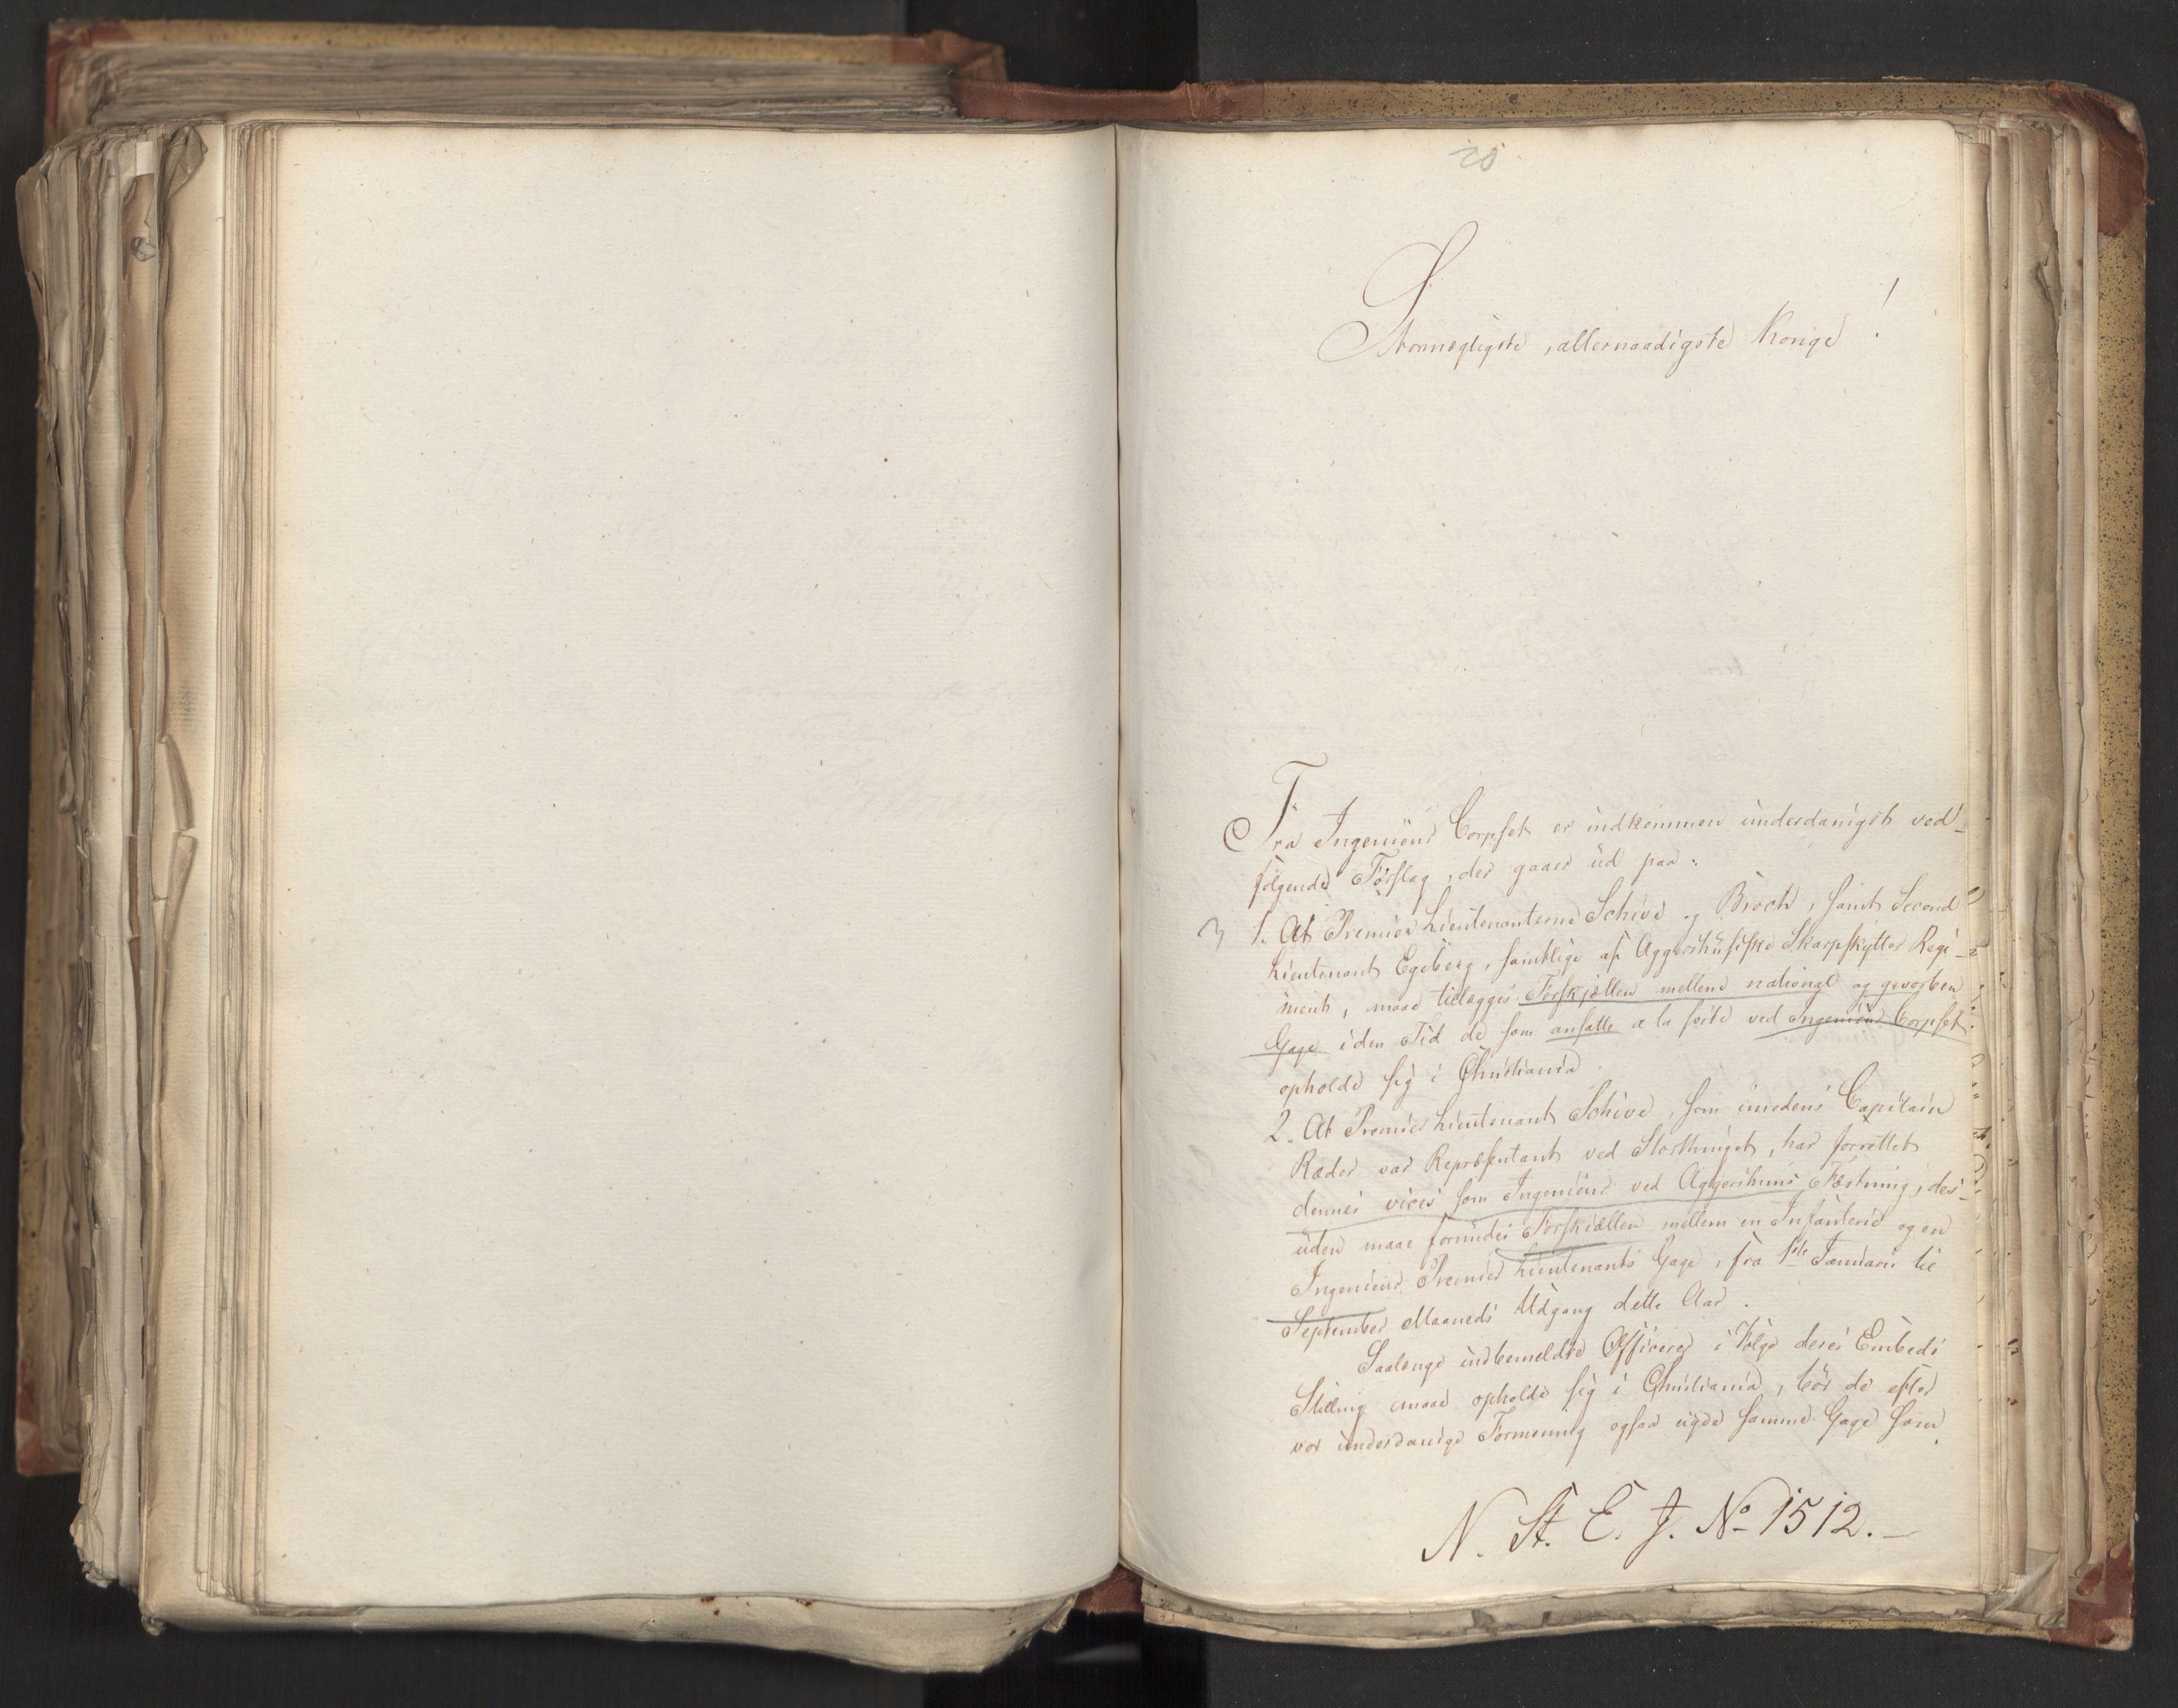 20
Stormægtigste, allernaadigste Konge!
Fra Ingenieur Corpset er indkommen underdanigst ved-
følgende Forslag, der gaaer ud paa:
1. At Premier Lieutenanterne Schive og Broch, samt Second
Lieutenant Egeberg, samtlige af Aggershusiske Skarpskytter Regi-
ment, maae tillægges Forskjællen mellem national og gevorben
Gage i den Tid de som ansatte a la suite ved Ingenieur Corpset
opholde sig i Christiania.
2. At Premier Lieutenant Schive, som imedens Capitain
Ræder var Repræsentant ved Storthinget, har forrettet
dennes vices som Ingenieur ved Aggershuus Fæstning, des-
uden maae forundes Forskiællen mellem en Infanterie og en
Ingenieur Premier Lieutenants Gage, fra 1ste Januarii til
September Maaneds Udgang dette Aar.
Saalænge indbemeldte Officerer i Følge deres Embeds
Stilling maae opholde sig i Christiania, bör de efter
vor underdanige Formening ogsaa nyde samme Gage som
N. St. E. J. No 1512.-